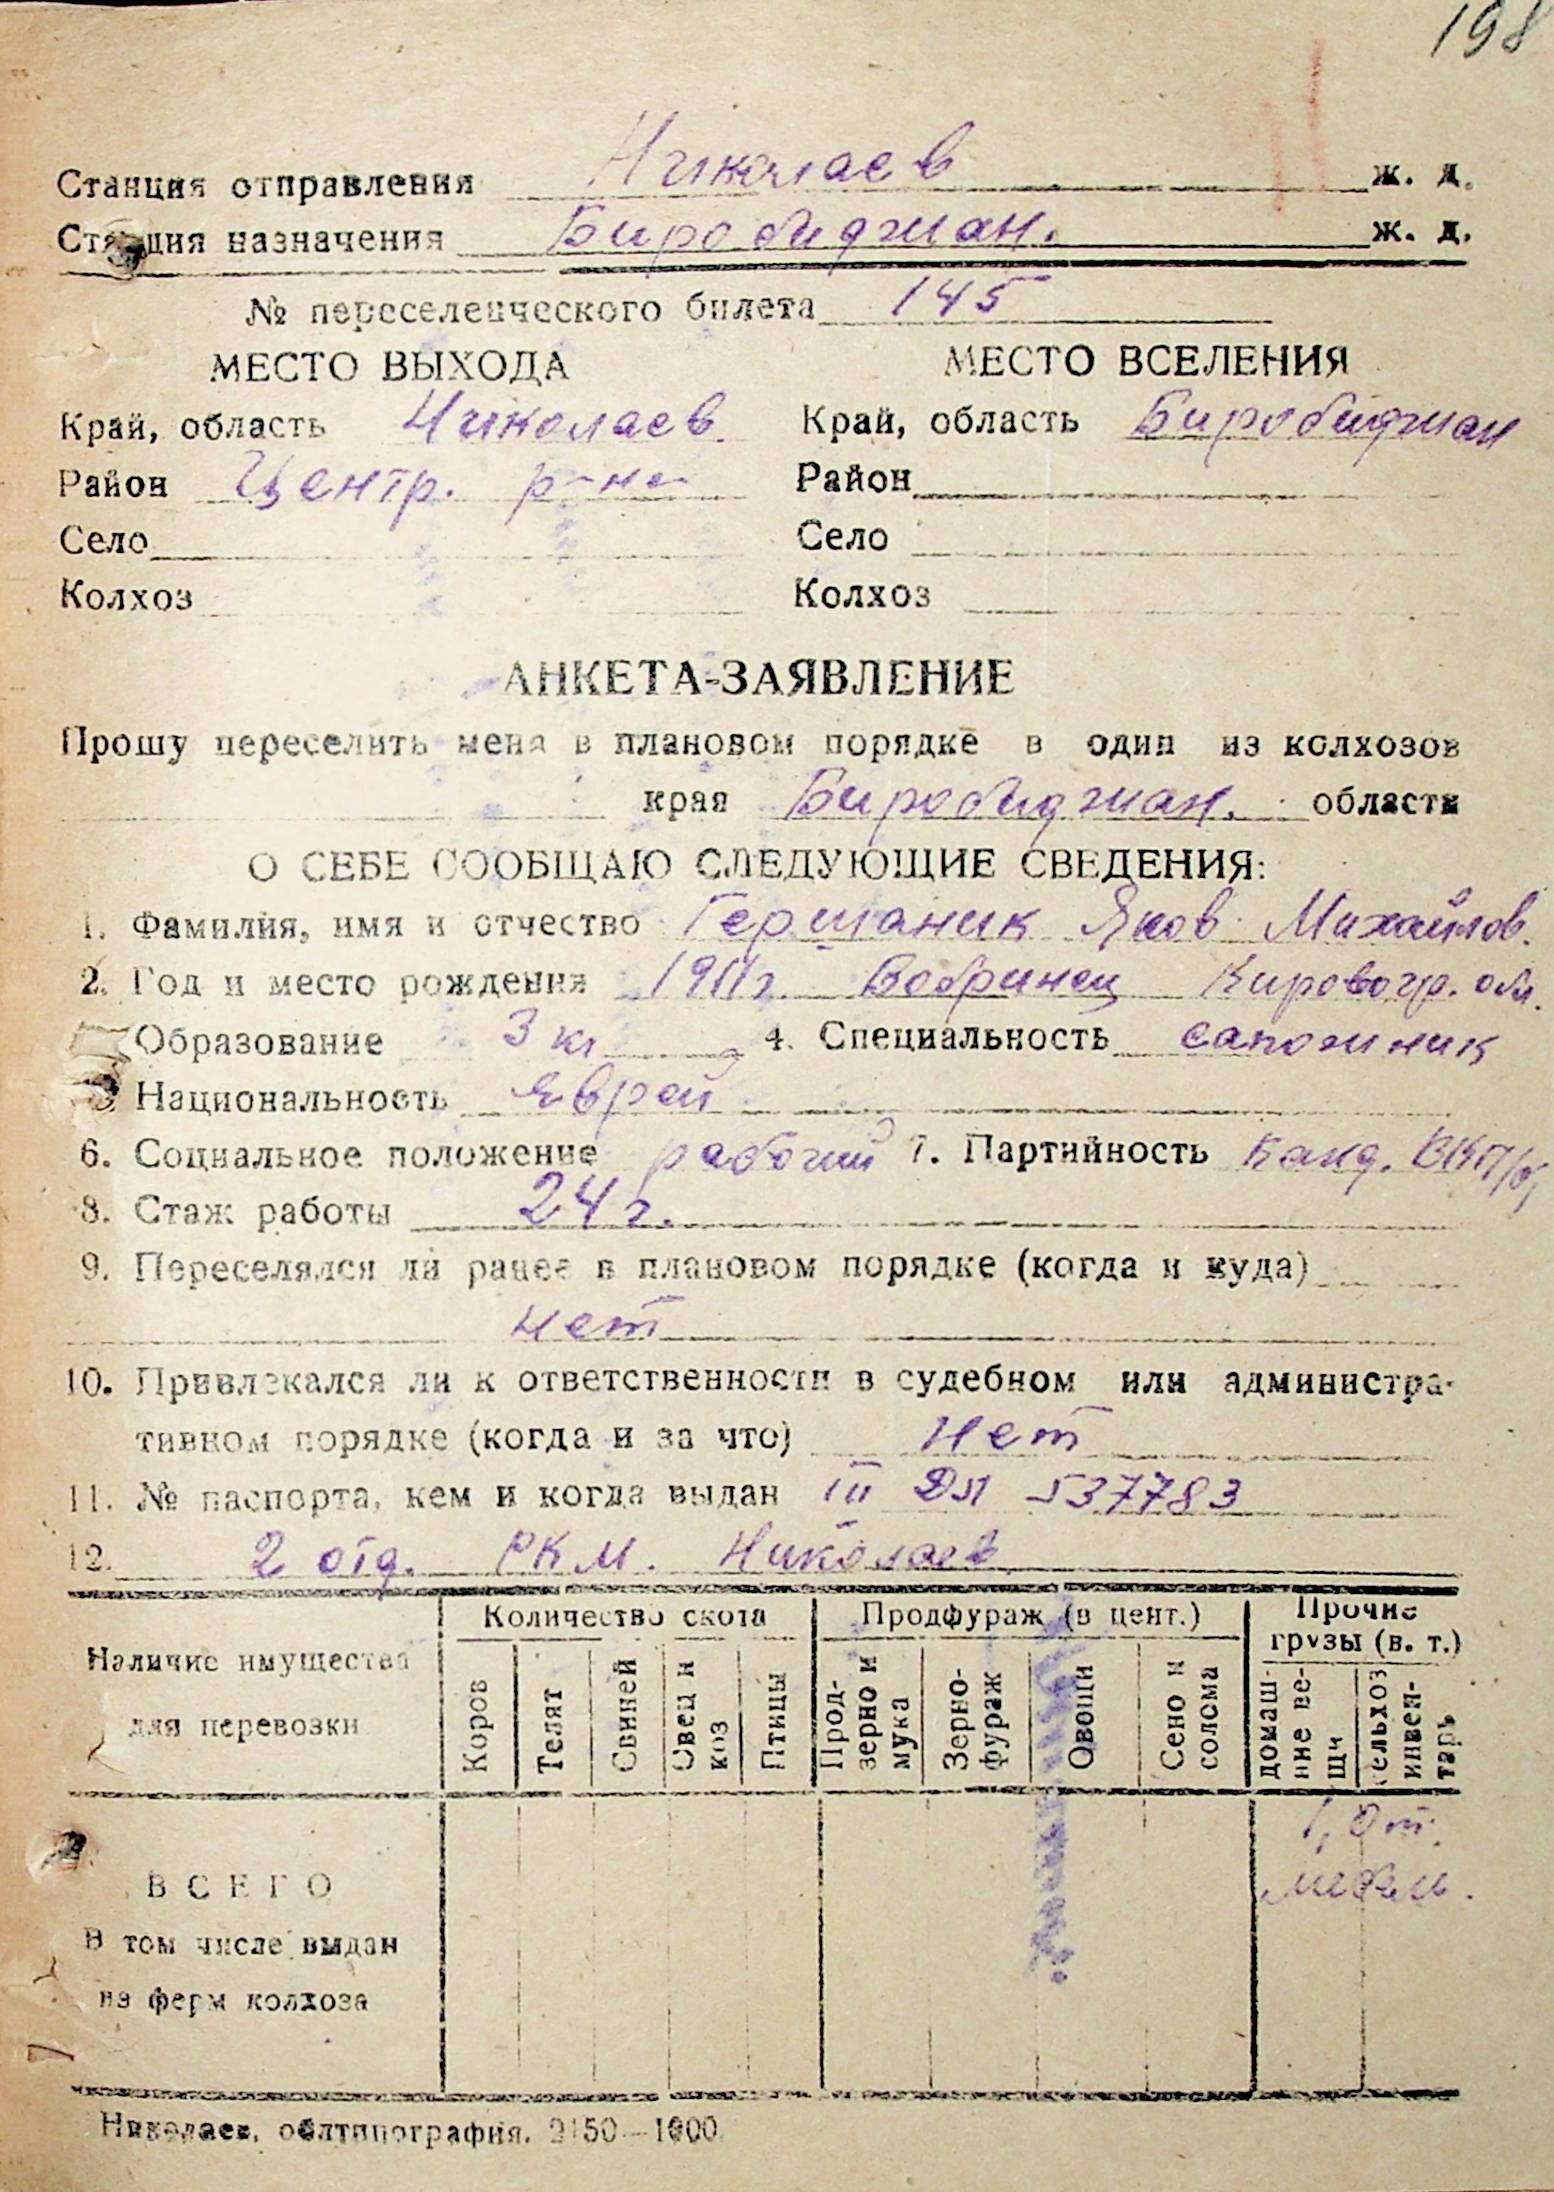 198
Станция отправления Николаев ж. д.
Станция назначения Биробиджан. ж. д.
№ переселенческого билета 145
МЕСТО ВЫХОДА МЕСТО ВСЕЛЕНИЯ
Край, область Николаев. Край, область Биробиджан
Район Центр. р-на Район
Село Село
Колхоз Колхоз
АНКЕТА-ЗАЯВЛЕНИЕ
Прошу переселить меня в плановом порядке в один из колхозов
края Биробиджан. области
О СЕБЕ СООБЩАЮ СЛЕДУЮЩИЕ СВЕДЕНИЯ:
1. Фамилия, имя и отчество Германик Яков Михайлов.
2. Год и место рождения 1911г. Бобринец Кировогр. обл.
Образование 3 кл 4. Специальность сапожник
Национальность еврей
6. Социальное положение рабочий 7. Партийность Канд. ВКП/б/
8. Стаж работы 24 г.
9. Переселялся ли ранее в плановом порядке (когда и куда)
нет
10. Привлекался ли к ответственности в судебном или администра-
тивном порядке (когда и за что) нет
11. № паспорта, кем и когда выдан III ДЛ 537783
12. 2 отд. РКМ. Николаев
Наличие имущества для перевозки Количество скота Продфураж (в цент.) Прочие грузы (в. т.)
Коров Телят Свиней Овец и коз Птицы Прод-зерно и мука Зерно-фураж Овощи Сено и солома домаш-ние ве-щи сельхоз инвен-тарь
1,0 т.
мебель.
ВСЕГО
В том числе выдан
из ферм колхоза
Николаев, облтипография. 2150—1000